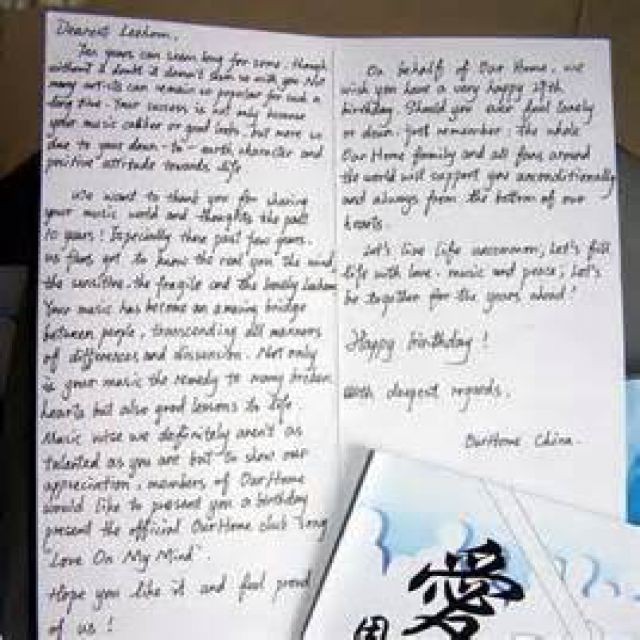 Dearest Leehom,
Ten years can seem long for some, though
without a doubt it doesn't seem so with you. Not
many artists can remain so popular for such a
long time. Your success is not only because
your music caliber or good looks, but more so
due to your down-to-earth character and
positive attitude towards life.
We want to thank you for sharing
your music world and thoughts the past
10 years! Especially these past few years,
as fans get to know the real you: the
the sensitive, the fragile and the lonely Leehom
Your music has become an amazing bridge
between people, transcending all manners
of differences and dissension. Not only
is your music the remedy to many broken
hearts but also good lessons to life.
Music wise we definitely aren't as
talented as you are but to show our
appreciation, members of OurHome
would like to present you a birthday
present the official OurHome club song
"Love On My Mind"
Hope you like it and feel proud
of us!
On behalf of Our Home, we
wish you have a very happy 29th
birthday. Should you ever feel lonely
or down, just remember: The whole
OurHome family and all fans around
the world will support you unconditionally
and always from the bottom of our
hearts.
Let's live life uncommon, let's fill
life with love, music and peace; let's
be together for the years ahead!
Happy birthday!
With deepest regards,
OurHome China.
愛